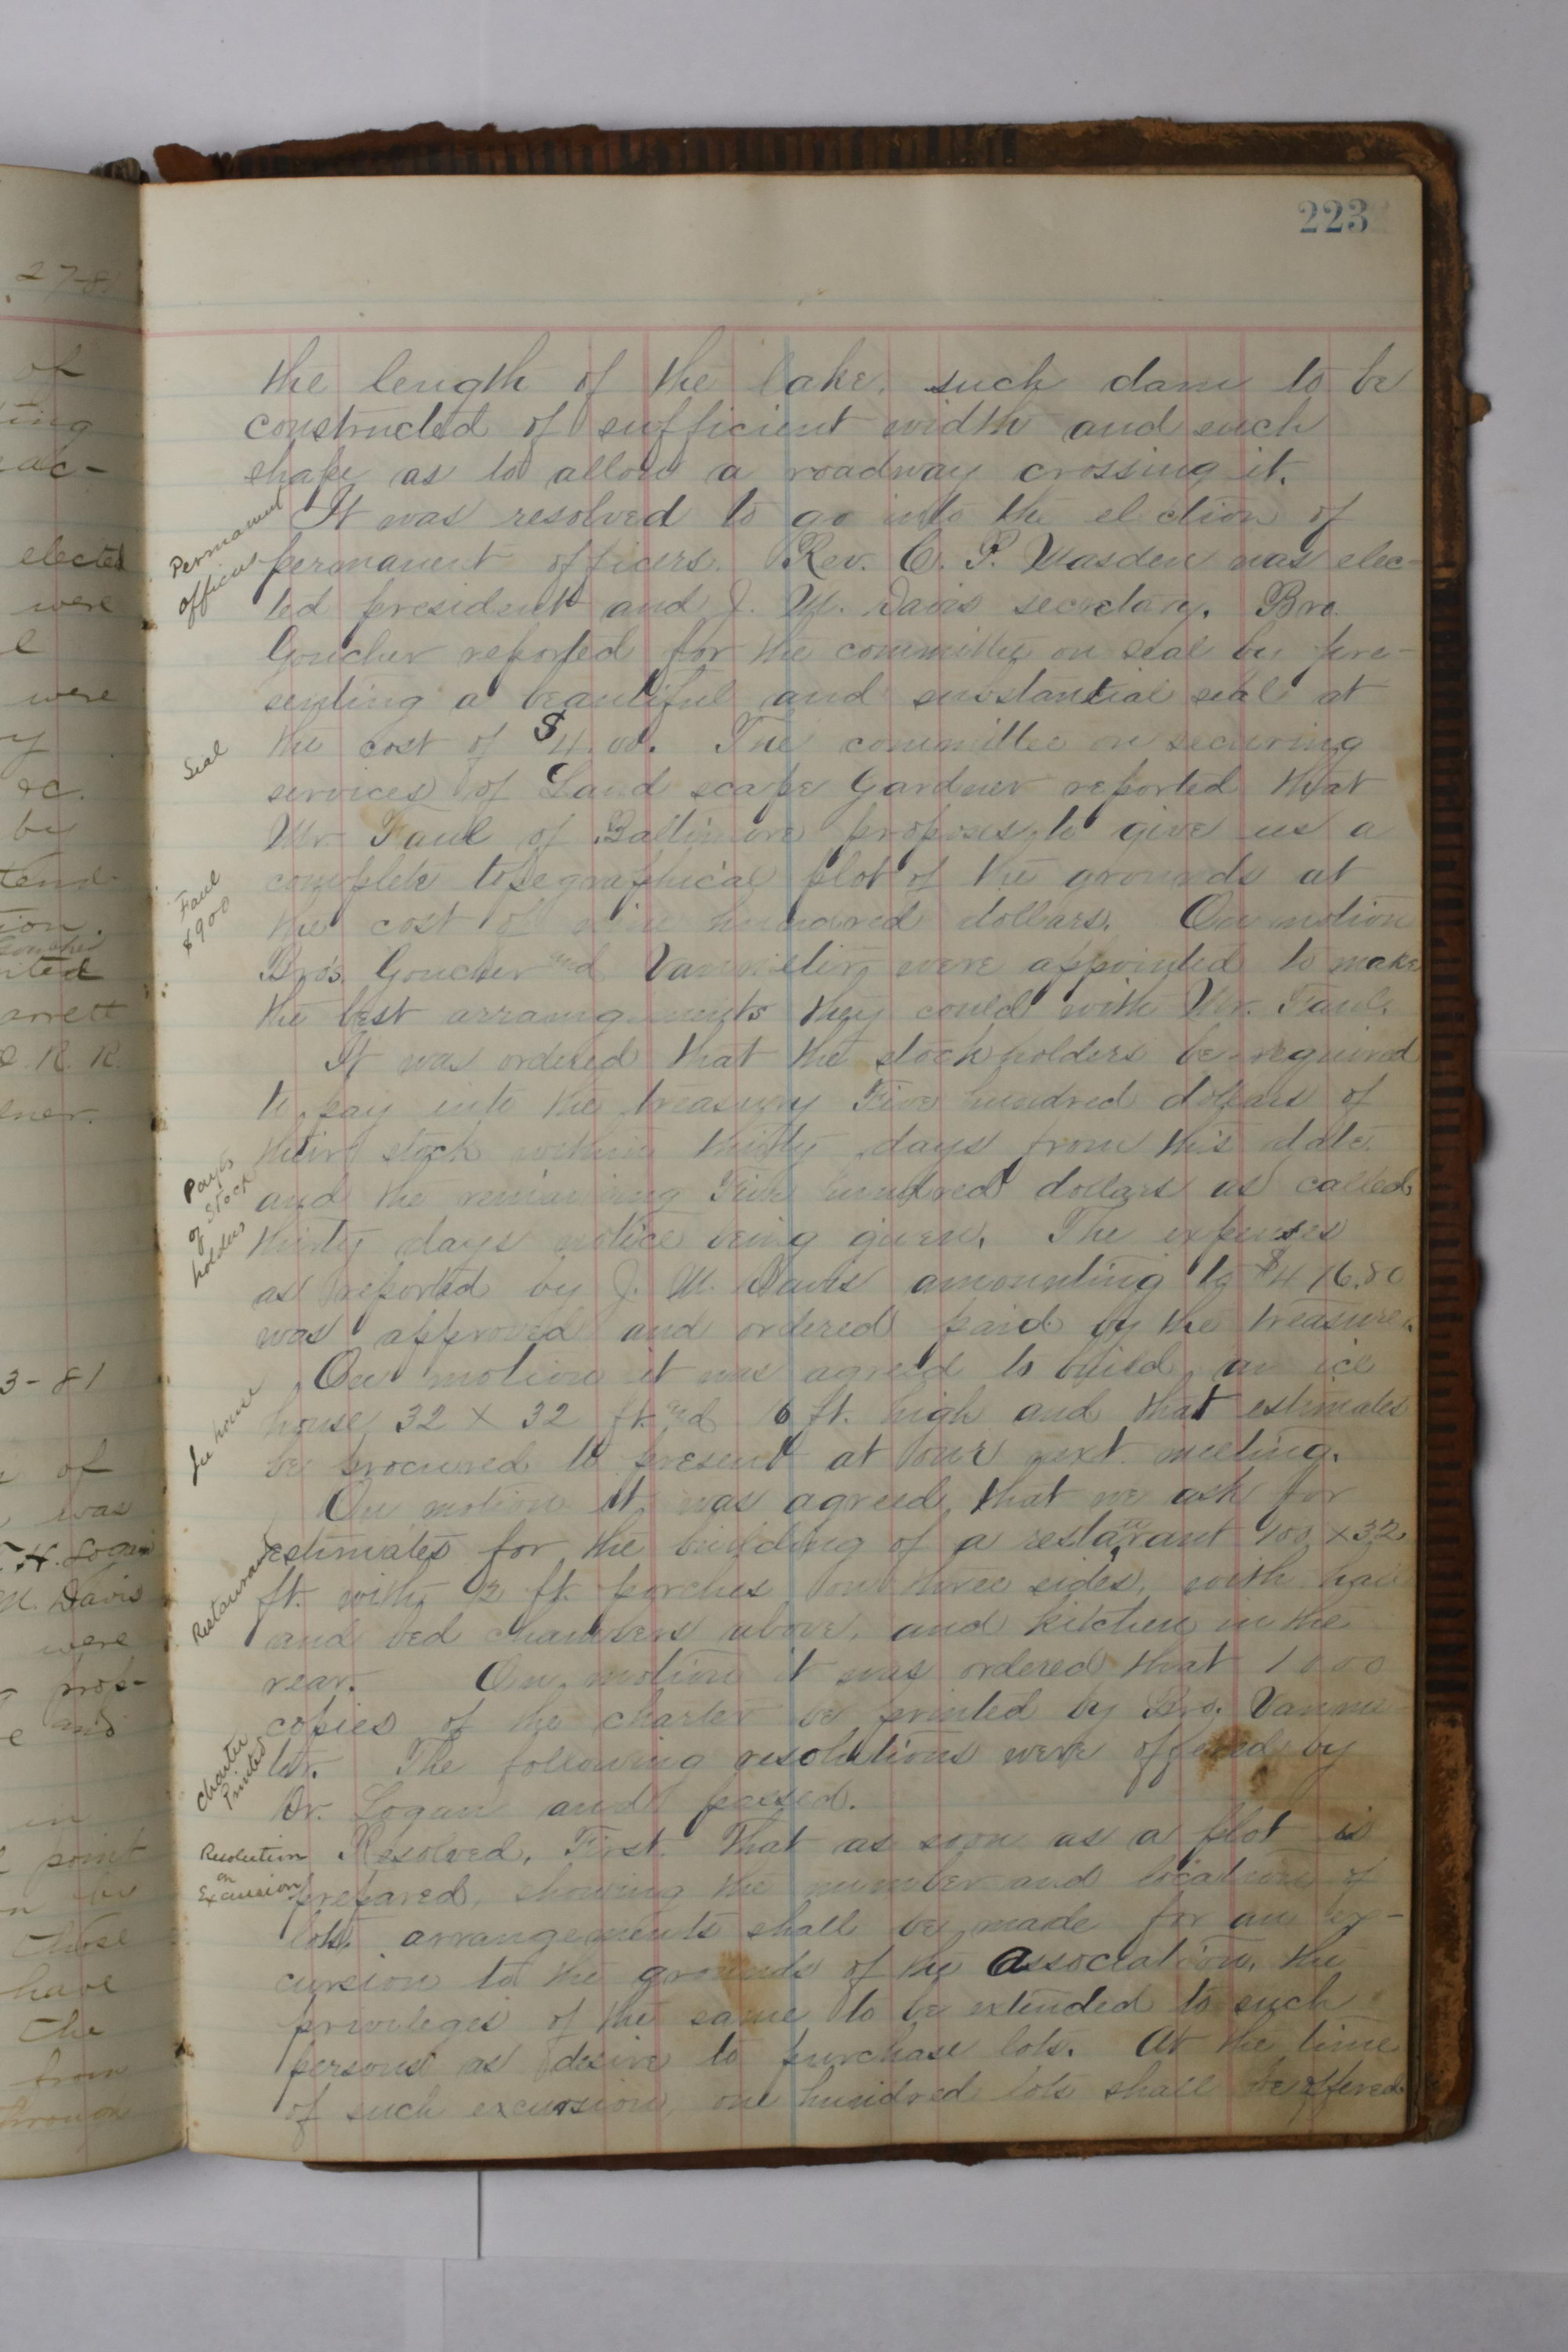 223
the length of the lake. such dam to be
constructed of sufficient width and such
shape as to allow a roadway crossing it.
Permanent
officers
It was resolved to go into the election of
permanent officers. Rev. C. P. Masden was elec-
ted president and J. M. Davis secretary. Bro.
Goucher reported for the committee on seal by pre-
senting a beautiful and substantial seal at
Seal
the cost of $4.00. The committee on securing
services of Land scape Gardner reported that
Mr. Faul of Baltimore proposes to give us a
Faul
$900
complete topographical plot of the grounds at
the cost of nine hundred dollars. On motion
Bros. Goucher and Vanmeter were appointed to make
the best arrangements they could with Mr. Faul.
It was ordered that the stockholders be required
to pay into the treasury Five hundred dollars of
Payts
of Stock
holders
their stock within thirty days from this date
and the remaining Five hundred dollars as called
thirty days notice being given. The expenses
as reported by J. M. Davis amounting to $416.80
was approved and ordered paid by the treasurer.
Ice house
On motion it was agreed to build an ice
house 32 x 32 ft. and 16 ft. high and that estimates
be procured to present at our next meeting.
On motion it was agreed that we ask for
Restaurant
estimates for the building of a restaurant 100 x 32
ft. with 12 ft. porches on three sides, with hall
and bed chambers above, and kitchen in the
rear. On motion it was ordered that 1000
Charter
Printed
copies of the charter be printed by Bro. Vanme-
ter. The following resolutions were offered by
Dr. Logan and passed.
Resolution
on
Excursion
Resolved, First. That as soon as a plot is
prepared, showing the number and location of
lots, arrangements shall be made for an ex-
cursion to the grounds of the Association, the
privileges of the same to be extended to such
persons as desire to purchase lots. At the time
of such excursion, one hundred lots shall be offered
27-8
of
ting
ac-
elected
were
were
by
tend
tion.
Goucher
ited
arrett
O. R. R.
3-81
of
was
T. H. Logan
M. Davis
were
prop-
and
in
point
those
have
the
from
through